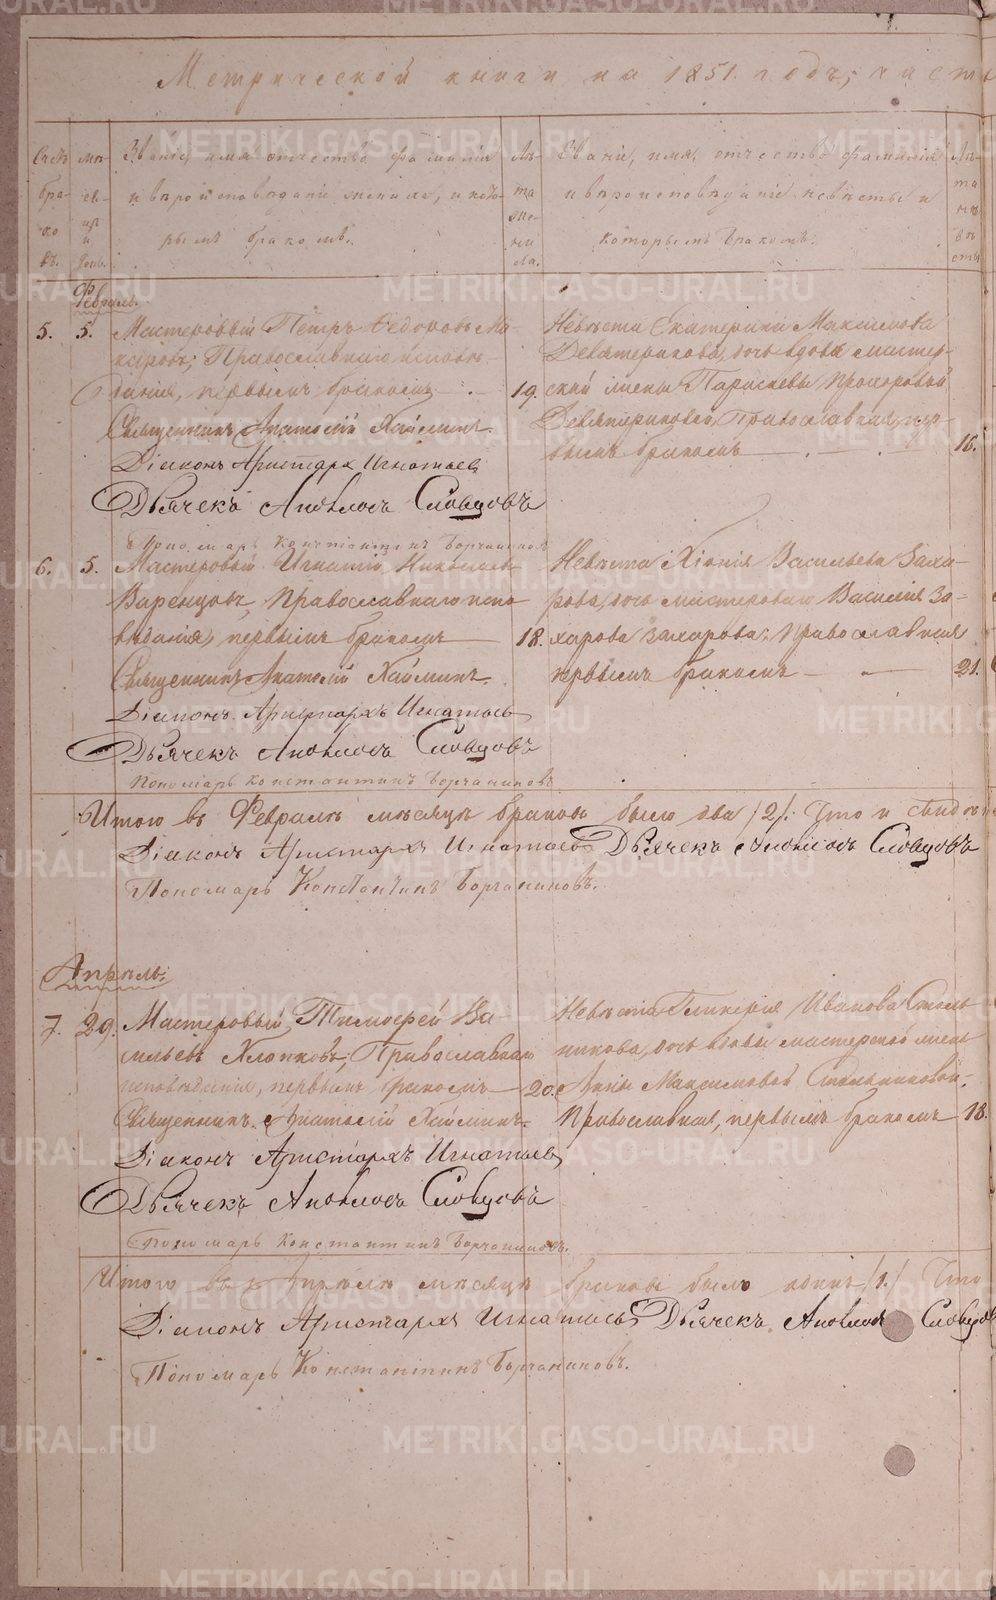 Метрической книги на 1851. годъ, часть
Счетъ
бра-
ко
въ.
мѣ-
ся-
цъ
и
день.
Званіе, имя, отчество, фамилія
и вѣроисповѣданіе жениха, и кото-
рымъ бракомъ.
Лѣ-
та
же-
ни
ха.
Званіе, имя, отчество, фамилія
и вѣроисповѣданіе невѣсты и
которымъ бракомъ.
Лѣ-
та
не-
вѣ
сты
Февраль.
5. 5. Мастеровый Петръ Ѳедоровъ Ма-
каровъ, Православнаго исповѣ-
данія, первымъ бракомъ 19.
Священникъ Анатолій Хайминъ.
Діаконъ Аристархъ Игнатьевъ
Дьячекъ Аполлосъ Словцовъ
Пономарь Константинъ Борчаниновъ
Невѣста Екатерина Максимова
Девятерикова, дочь вдовы мастер-
ской жены Параскевы Прохоровой
Девятериковой, Православная, пер-
вымъ бракомъ 16.
6. 5. Мастеровый Игнатій Николаевъ
Варенцовъ, Православнаго испо
вѣданія, первымъ бракомъ 18.
Священникъ Анатолій Хайминъ.
Діаконъ Аристархъ Игнатьевъ
Дьячекъ Аполлосъ Словцовъ
Пономарь Константинъ Борчаниновъ
Невѣста Хіонія Васильева Заха-
рова, дочь мастероваго Василія За-
харова Захарова, Православная
первымъ бракомъ 21.
Итого въ Февралѣ мѣсяцѣ браковъ было два /2/. Что и свидѣ
Діаконъ Аристархъ Игнатьевъ Дьячекъ Аполлосъ Словцовъ
Пономарь Константинъ Борчаниновъ.
Апрѣль.
7. 29. Мастеровый, Тимофей Ва-
сильевъ Клопковъ, Православнаго
исповѣданія, первымъ бракомъ 20.
Священникъ Анатолій Хайминъ.
Діаконъ Аристархъ Игнатьевъ
Дьячекъ Аполлосъ Словцовъ
Пономарь Константинъ Борчаниновъ.
Невѣста Гликерія Иванова Столь
никова, дочь вдовы мастерской жены
Анны Максимовой Стольниковой,
Православная, первымъ бракомъ 18.
Итого въ Апрѣлѣ мѣсяцѣ браковъ было одинъ /1./ Что
Діаконъ Аристархъ Игнатьевъ Дьячекъ Аполлосъ Словцовъ
Пономарь Константинъ Борчаниновъ.
METRIKI.GASO-URAL.RU